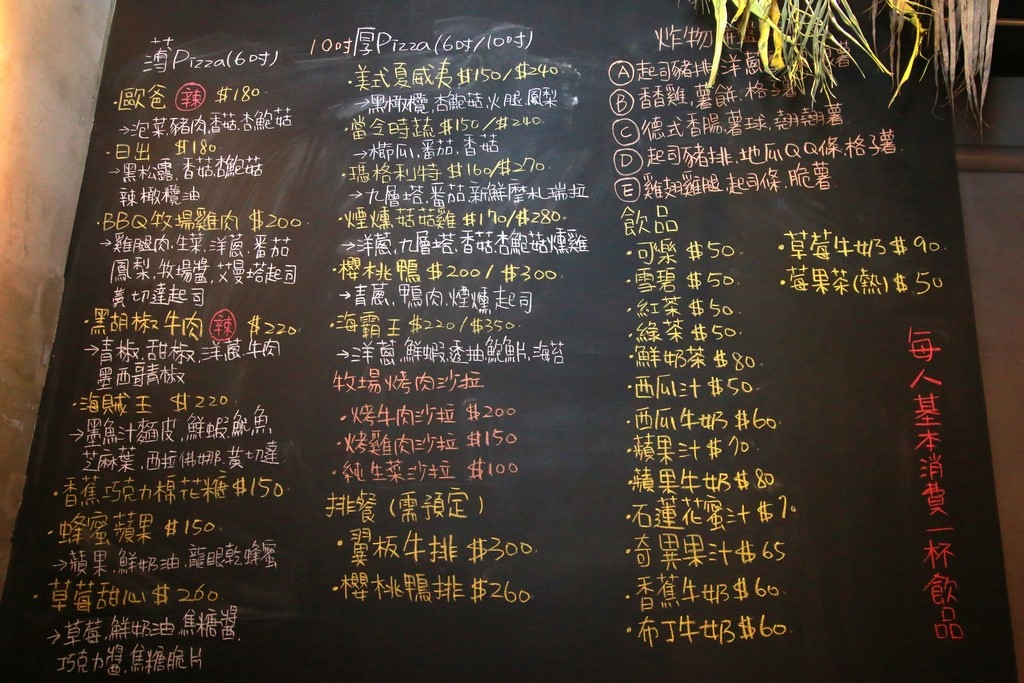 薄Pizza(6吋)
·歐爸 辣 $180
→泡菜豬肉,香菇,杏鮑菇
·日出 $180
→黑松露,香菇,杏鮑菇
辣橄欖油
·BBQ牧場雞肉 $200
→雞腿肉,生菜,洋蔥,番茄
鳳梨,牧場醬,艾曼塔起司
黃切達起司
·黑胡椒牛肉 辣 $220
→青椒,甜椒,洋蔥,牛肉
墨西哥青椒
·海賊王 $220
→墨魚汁麵皮,鮮蝦,魷魚,
芝麻葉,西拉佛娜,黃切達
·香蕉巧克力棉花糖$150
·蜂蜜蘋果 $150
→蘋果,鮮奶油,龍眼乾,蜂蜜
·草莓甜心 $260
→草莓,鮮奶油,焦糖醬
巧克力醬,焦糖脆片
10吋厚Pizza(6吋/10吋)
·美式夏威夷$150/$240
→黑橄欖,杏鮑菇,火腿,鳳梨
·當令時蔬$150/$240
→櫛瓜,番茄,香菇
·瑪格利特$160/$270
→九層塔,番茄,新鮮摩札瑞拉
·煙燻菇菇雞$170/$280
→洋蔥,九層塔,香菇,杏鮑菇,燻雞
·櫻桃鴨$200/$300
→青蔥,鴨肉,煙燻起司
·海霸王$220/$350
→洋蔥,鮮蝦,透抽,鮑魚片,海苔
牧場烤肉沙拉
·烤牛肉沙拉 $200
·烤雞肉沙拉 $150
·純生菜沙拉 $100
排餐(需預定)
·翼板牛排 $300
·櫻桃鴨排 $260
炸物
Ⓐ起司豬排,洋蔥 薯
Ⓑ香香雞,薯餅,格子薯
Ⓒ德式香腸,薯球,翹翹薯
Ⓓ起司豬排,地瓜QQ條,格子薯
Ⓔ雞翅雞腿,起司條,脆薯
飲品
·可樂$50
·雪碧$50
·紅茶$50
·綠茶$50
·鮮奶茶$80
·西瓜汁$50
·西瓜牛奶$60
·蘋果汁$70
·蘋果牛奶$80
·石蓮花蜜汁$
·奇異果汁$65
·香蕉牛奶$60
·布丁牛奶$60
·草莓牛奶$90
·莓果茶(熱)$50
每人基本消費一杯飲品